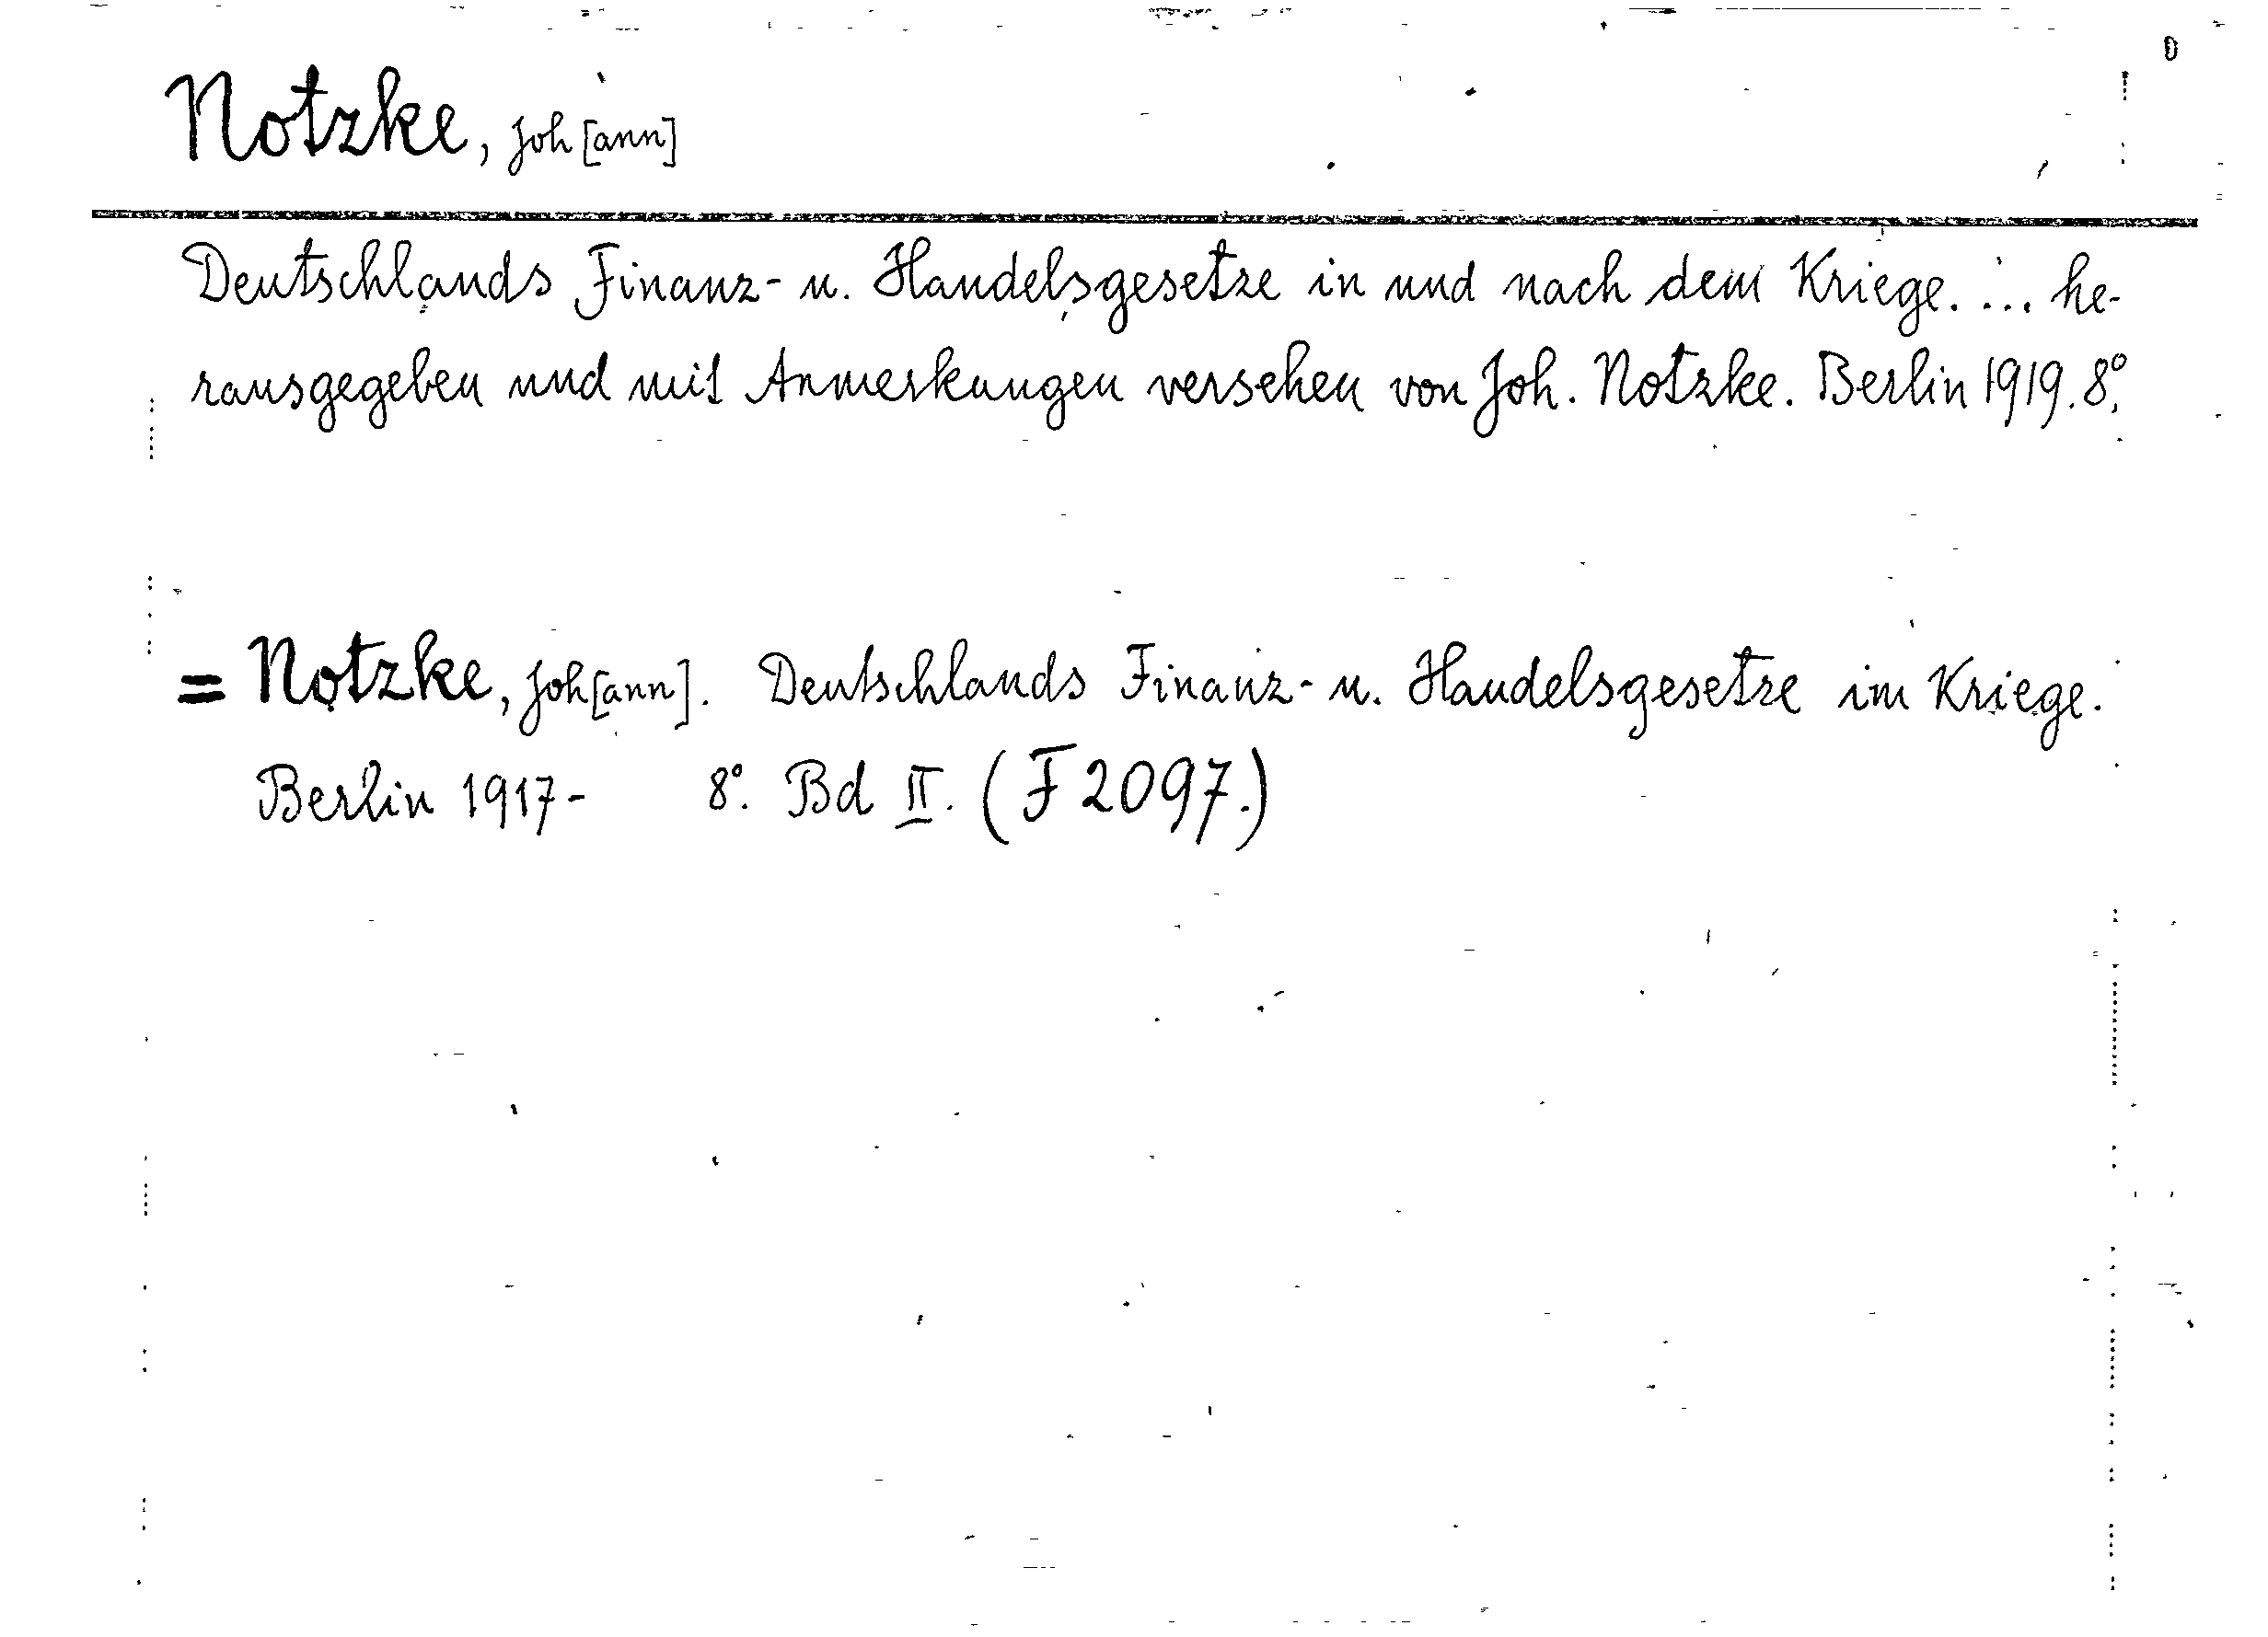 Notzke, Joh[ann]
Deutschlands Finanz- u. Handelsgesetze in und nach dem Kriege. ... he-
rausgegeben und mit Anmerkungen versehen von Joh. Notzke. Berlin 1919. 8°.
= Notzke, Joh[ann]. Deutschlands Finanz- u. Handelsgesetze im Kriege.
Berlin 1917- 8°. Bd II. (F 2097.)